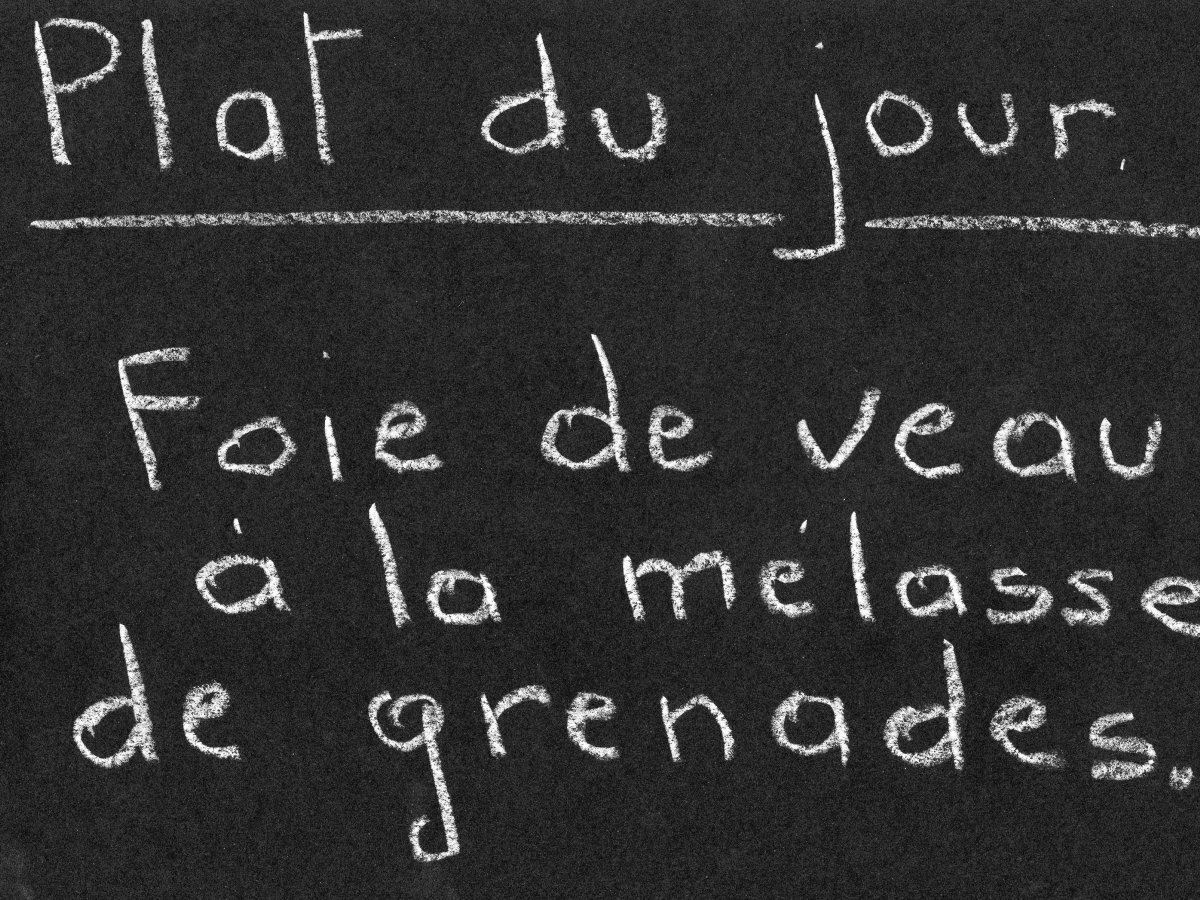 Plat du jour.
Foie de veau
à la mélasse
de grenades.